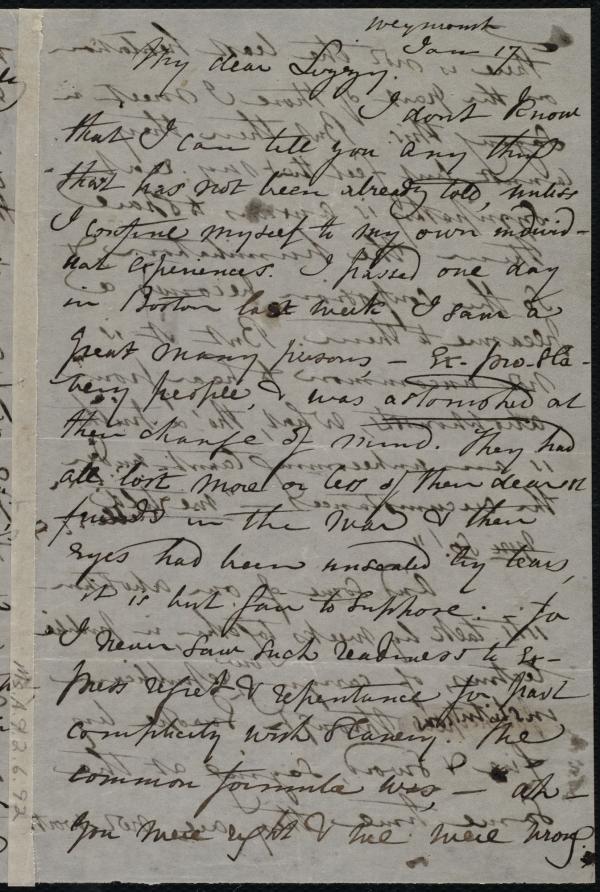 Weymouth
Jan 17
My dear Lizzy.
I don't know
that I can tell you any thing
that has not been already told, unless
I confine myself to my own individ-
ual experiences. I passed one day
in Boston last week I saw a
great many persons, – Ex-pro-sla-
very people, & was astonished at
their change of mind. They had
all lost more or less of their dearest
friends in the war & their
Eyes had been unsealed by tears,
it is but fair to suppose. – for
I never saw such readiness to Ex-
press regret & repentance for past
complicity with Slavery. The
common formula was – ah –
you were right & we were wrong.